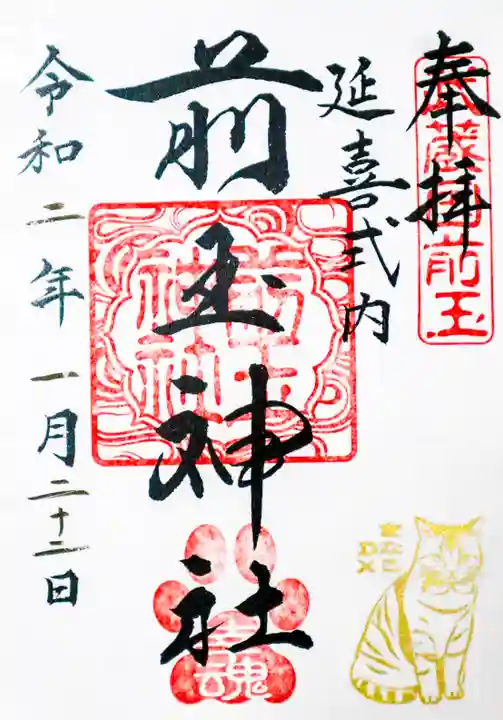 奉拝
武蔵国前玉
延喜式内
前玉神社
前玉神社
幸魂
令和二年一月二十二日